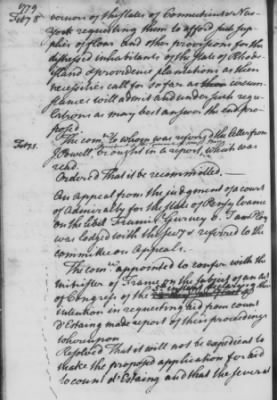 1779
Feby 8
vernors of the States of Connecticut & New
York requesting them to afford such sup
plies of flour and other provisions for the
distressed inhabitants of the State of Rhode
Island & providence plantations as their
necessities call for so far as circum
stances will admit and under such regu
lations as may best answer the end pro
posed.
The comee to whom was referred the letter from
J Powell, brought in a report, which was
read.
Ordered That it be recommitted.
An Appeal from the judgment of a court
of Admiralty for the State of Pensylvania
on the libel Francis Gurney
was lodged with the secy & referred to the
committee on Appeals.
The comee appointed to confer with the
minister of France on the subject of an act
of Congress of the
tention in requesting aid from count
d'Estaing made report of their proceedings
whereupon
Resolved That it will not be expedient to
make the proposed application for aid
to count d'Estaing and that the several